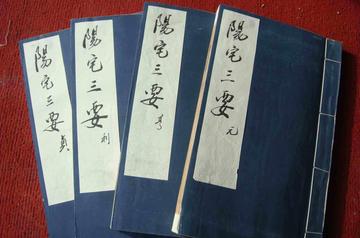 陽宅三要元
陽宅三要亨
陽宅三要利
陽宅三要貞